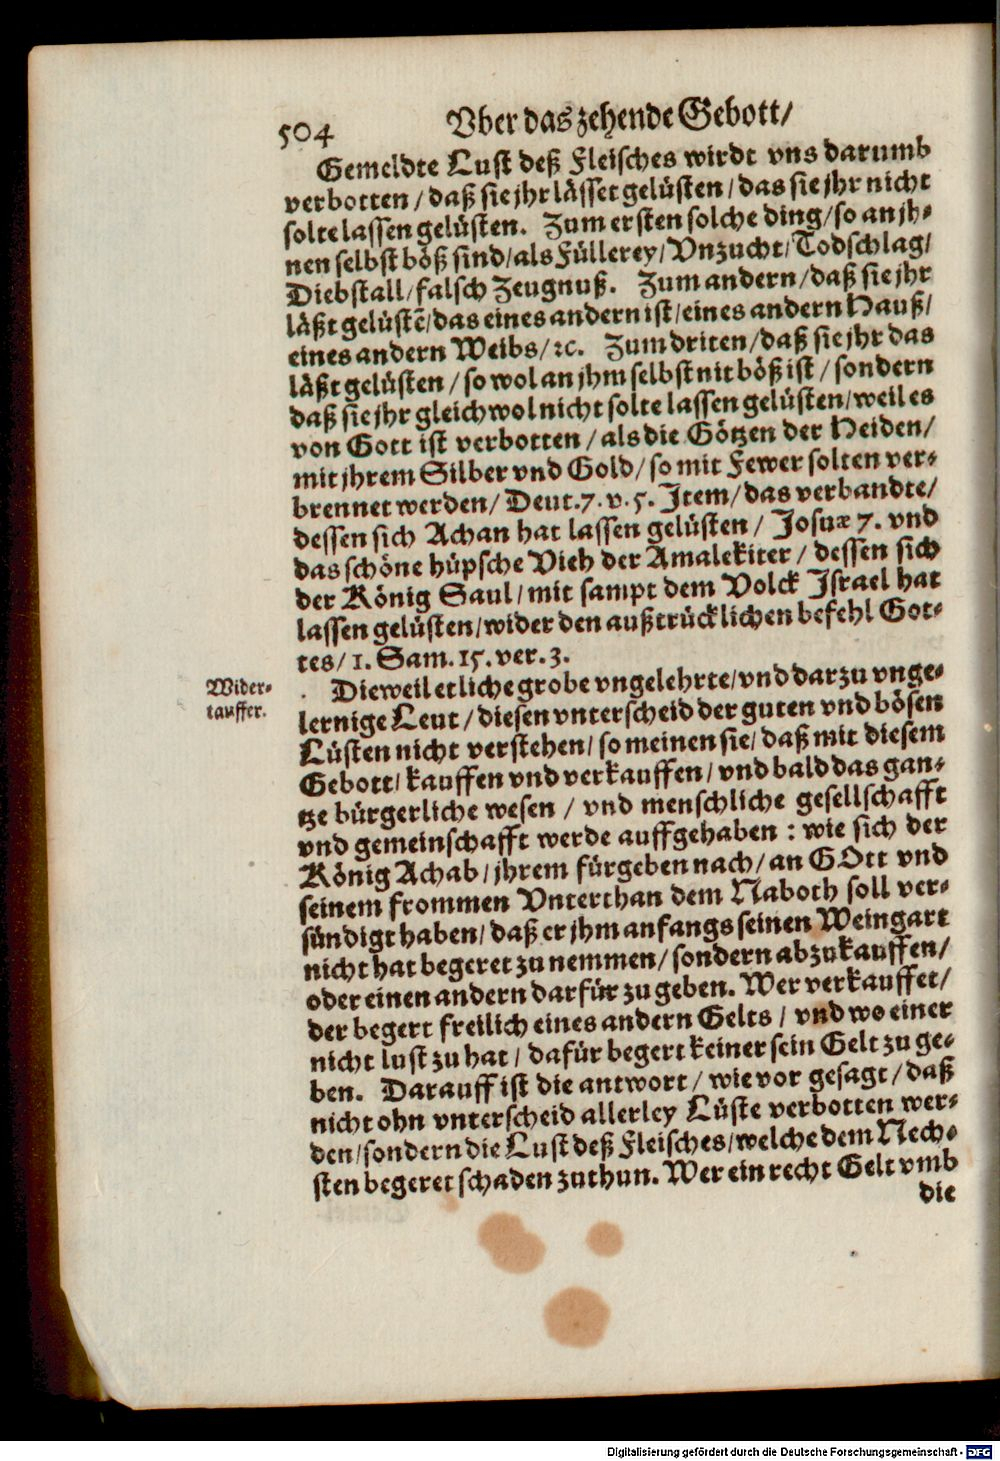 504 Vber das zehende Gebott/
Gemeldte Lust deß Fleisches wirdt vns darumb
verbotten/ daß sie jhr lässet gelüsten/ das sie jhr nicht
solte lassen gelüsten. Zum ersten solche ding/ so an jh-
nen selbst böß sind/ als Füllerey/ Vnzucht/ Todschlag/
Diebstall/ falsch Zeugnuß. Zum andern/ daß sie jhr
läßt gelüstẽ/ das eines andern ist/ eines andern Hauß/
eines andern Weibs/ ꝛc. Zum driten/ daß sie jhr das
läßt gelüsten/ so wol an jhm selbst nit böß ist/ sondern
daß sie jhr gleichwol nicht solte lassen gelüsten/ weil es
von Gott ist verbotten/ als die Götzen der Heiden/
mit jhrem Silber vnd Gold/ so mit Fewer solten ver-
brennet werden/ Deut. 7. v. 5. Item/ das verbandte/
dessen sich Achan hat lassen gelüsten/ Josuæ 7. vnd
das schöne hüpsche Vieh der Amalekiter/ dessen sich
der König Saul/ mit sampt dem Volck Israel hat
lassen gelüsten/ wider den außtrücklichen befehl Got-
tes/ 1. Sam. 15. ver. 3.
Wider-
tauffer.
Dieweil etliche grobe vngelehrte/ vnd darzu vnge-
lernige Leut/ diesen vnterscheid der guten vnd bösen
Lüsten nicht verstehen/ so meinen sie/ daß mit diesem
Gebott/ kauffen vnd verkauffen/ vnd bald das gan-
tze bürgerliche wesen/ vnd menschliche gesellschafft
vnd gemeinschafft werde auffgehaben: wie sich der
König Achab/ jhrem fürgeben nach/ an GOtt vnd
seinem frommen Vnterthan dem Naboth soll ver-
sündigt haben/ daß er jhm anfangs seinen Weingart
nicht hat begeret zu nemmen/ sondern abzukauffen/
oder einen andern darfür zu geben. Wer verkauffet/
der begert freilich eines andern Gelts/ vnd wo einer
nicht lust zu hat/ dafür begert keiner sein Gelt zu ge-
ben. Darauff ist die antwort/ wie vor gesagt/ daß
nicht ohn vnterscheid allerley Lüste verbotten wer-
den/ sondern die Lust deß Fleisches/ welche dem Nech-
sten begeret schaden zuthun. Wer ein recht Gelt vmb
die
Digitalisierung gefördert durch die Deutsche Forschungsgemeinschaft - DFG